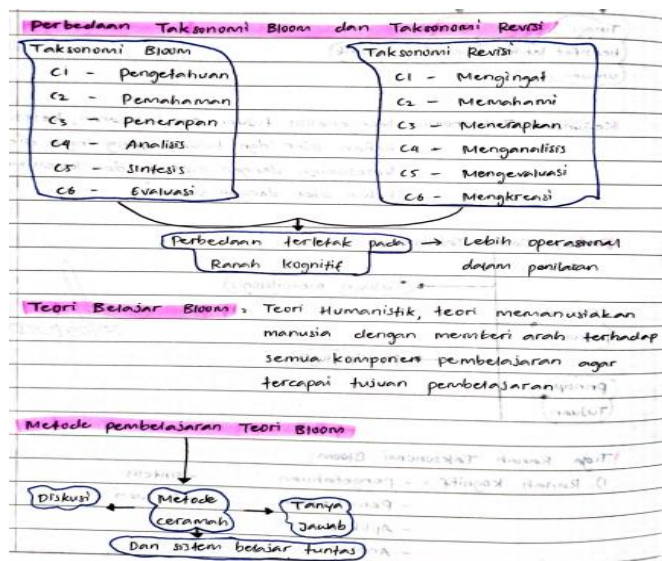 Perbedaan Taksonomi Bloom dan Taksonomi Revisi
Taksonomi Bloom
C1 - Pengetahuan
C2 - Pemahaman
C3 - Penerapan
C4 - Analisis
C5 - Sintesis
C6 - Evaluasi
Taksonomi Revisi
C1 - Mengingat
C2 - Memahami
C3 - Menerapkan
C4 - Menganalisis
C5 - Mengevaluasi
C6 - Mengkreasi
Perbedaan terletak pada → Lebih operasional
Ranah kognitif dalam penilaian
Teori Belajar Bloom : Teori Humanistik, teori memanusiakan
manusia dengan memberi arah terhadap
semua komponen pembelajaran agar
tercapai tujuan pembelajaran
Metode pembelajaran Teori Bloom
Diskusi
Metode
ceramah
Tanya
Jawab
Dan sistem belajar tuntas